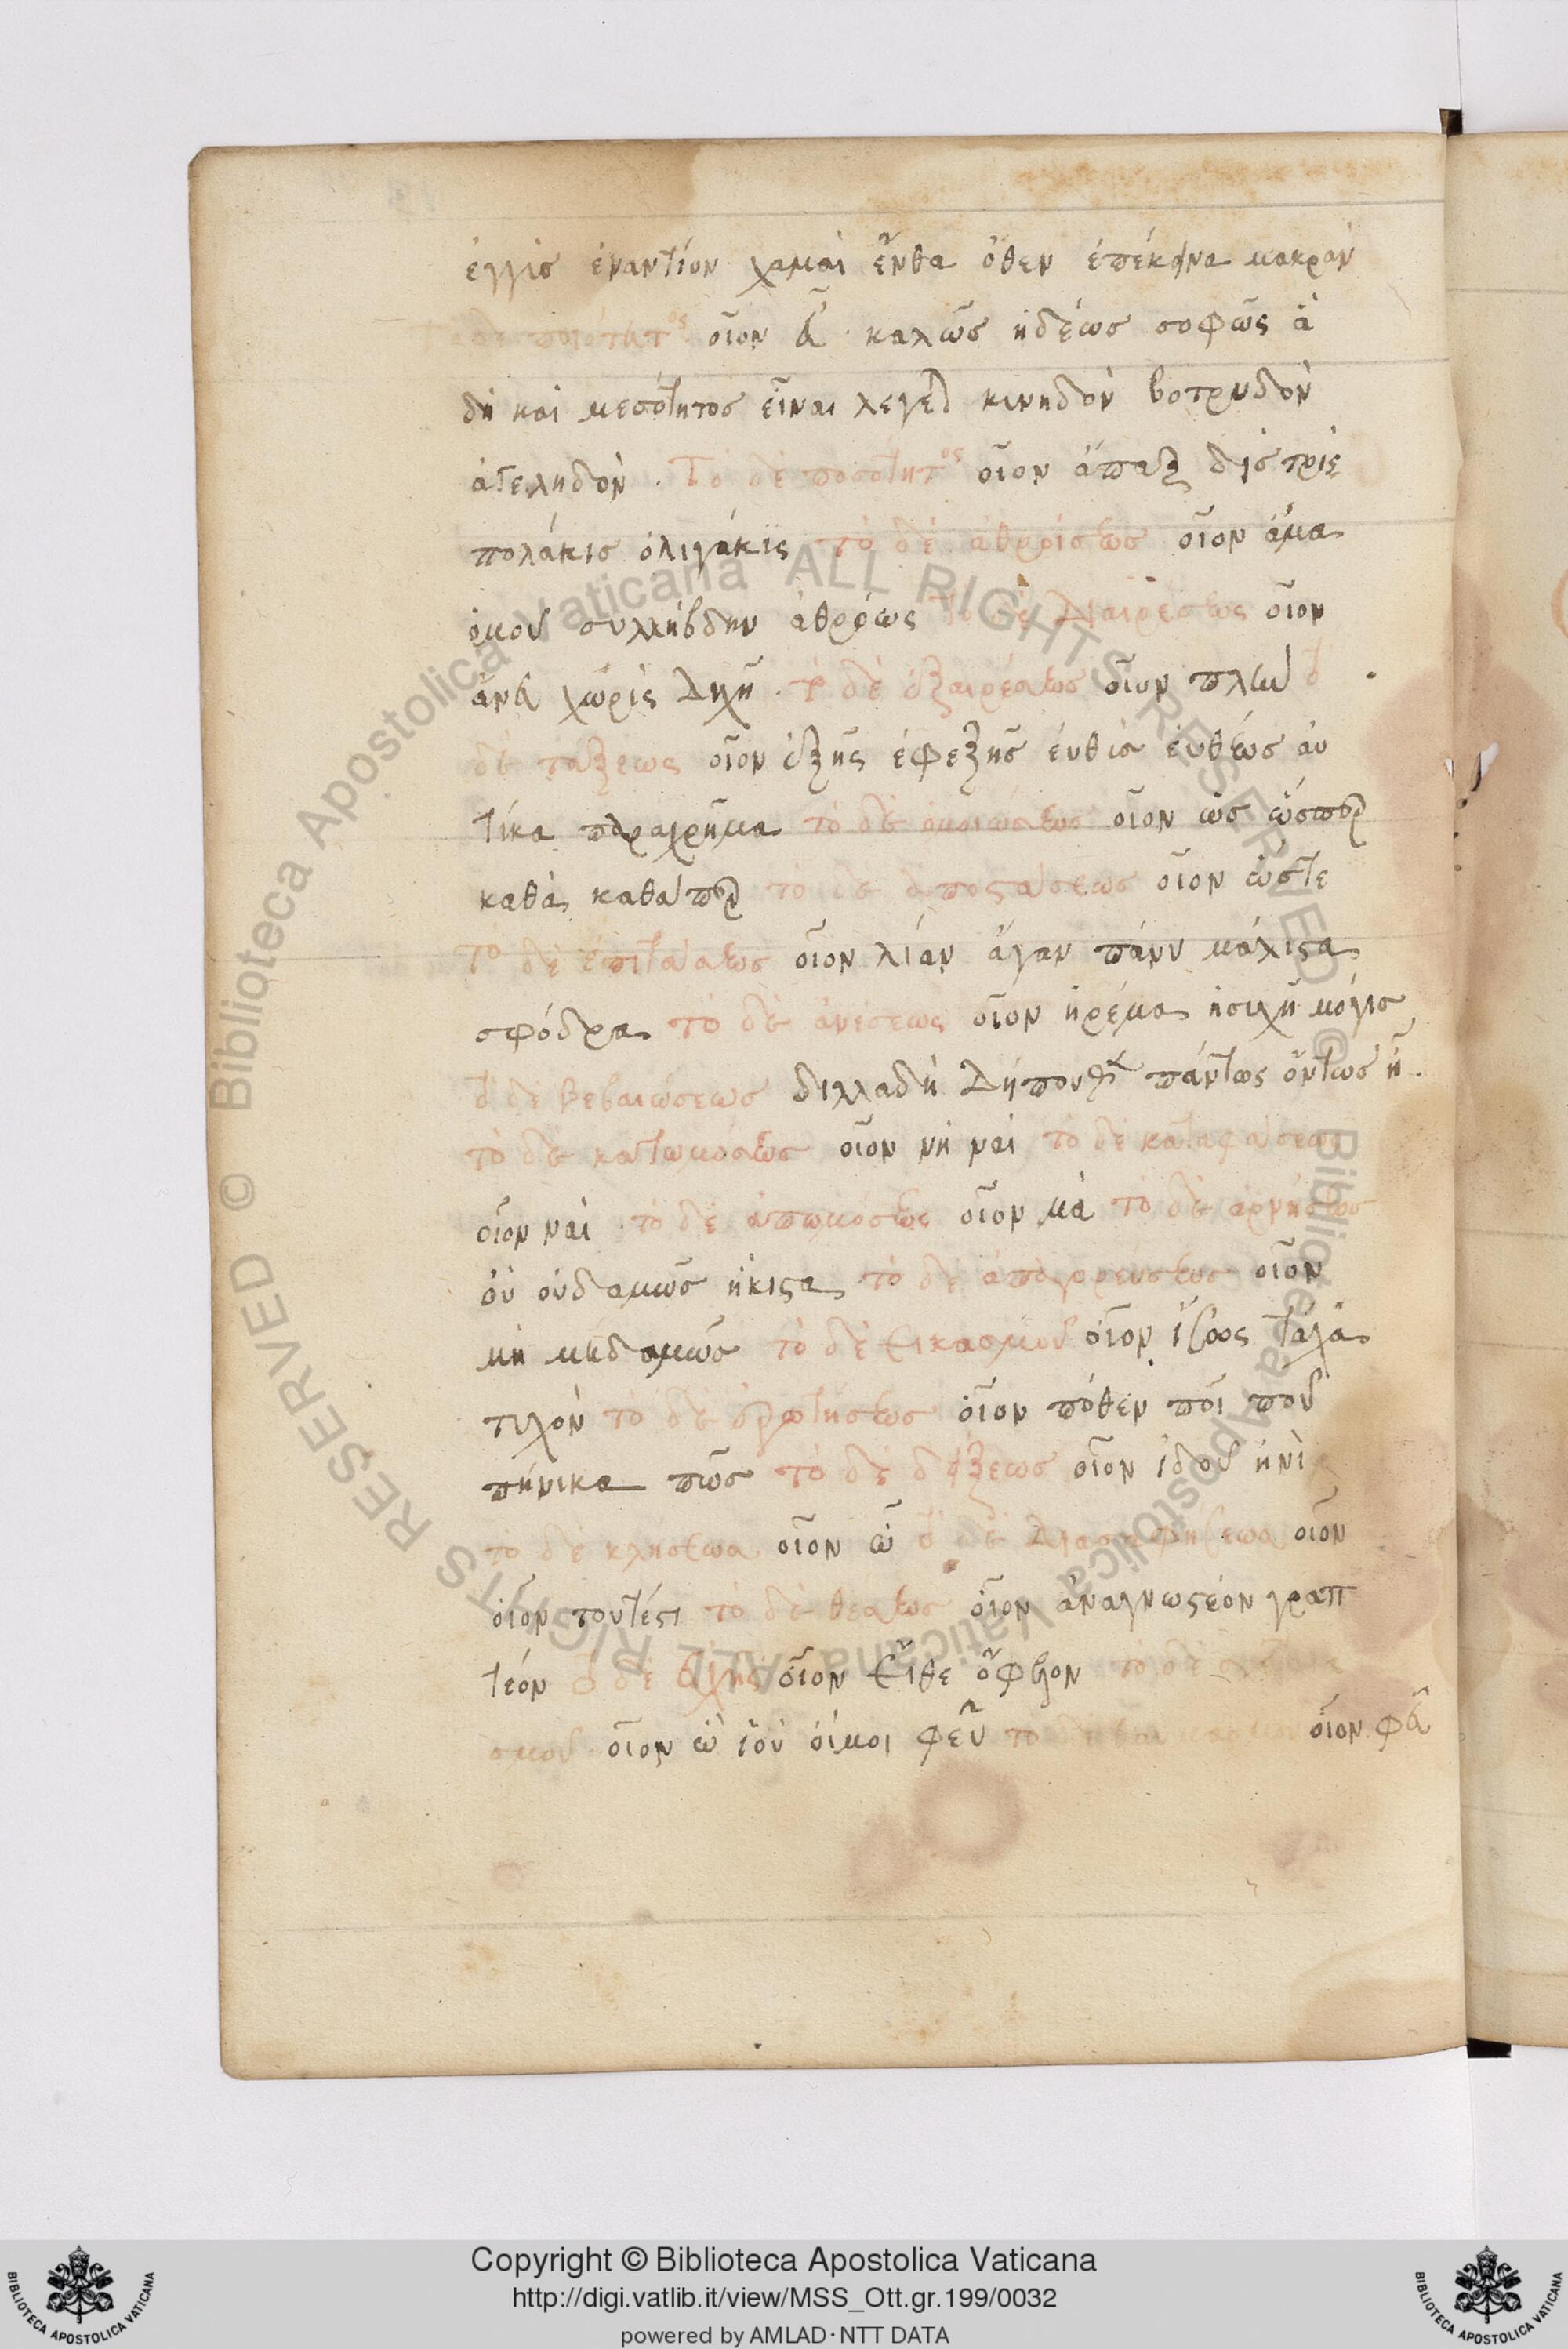 ἐγγὶσ ἐναντίον χαμαὶ ἔνθα ὅθεν ἐπέκεινα μακρὰν
ποιότητος οἷον εὖ· καλῶσ ἡδέωσ σοφῶς ἃ
δὴ καὶ μεσότητοσ εἶναι λεγε κινηδὸν βοτρυδὸν
ἀγεληδὸν. Τὸ δὲ ποσότητος οἷον ἅπαξ δὶς τρὶς
πολάκισ ὀλιγάκις τὸ δὲ ἀθροίσεωσ οἷον ἅμα
ὁμοῦ συλλήβδην ἀθρόως τὸ δὲ διαιρέσεως οἷον
χωρὶς διχῆ. τὸ δὲ ἐξαιρέσεωσ οἷον πλὴν τὸ
δὲ τάξεως οἷον ἑξῆς ἐφεξῆσ εὐθὶσ εὐθέωσ αὐ
τίκα παραχρῆμα τὸ δὲ ὁμοιώσεωσ οἷον ὡσ ὥσπερ
καθὰ καθάπερ τὸ δὲ ἀποστάσεωσ οἷον ὥστε
τὸ δὲ ἐπιτάσεωσ οἷον λίαν ἄγαν πάνυ μάλιστα
σφόδρα τὸ δὲ ἀνέσεως οἷον ἠρέμα ἡσυχῆ μόγισ
τὸ δὲ βεβαιώσεωσ διλλαδὴ δήπουθεν πάντως ὄντωσ ἦ.
τὸ δὲ κατωμόσεωσ οἷον νὴ ναὶ τὸ δὲ καταφάσεωσ
οἷον ναὶ τὸ δὲ ἀπωμόσεως οἷον μὰ τὸ δὲ ἀρνήσεωσ
οὐ οὐδαμῶσ ἥκιστα τὸ δὲ ἀπαγορεύσεωσ οἷον
μὴ μηδαμῶσ τὸ δὲ εἰκασμοῦ οἷον ἴσως τάχα
τυχὸν τὸ δὲ ἐρωτήσεωσ οἷον πόθεν ποῖ ποῦ
πήνικα πῶσ τὸ δὲ δείξεωσ οἷον ἰδοῦ ἠνὶ
τὸ δὲ κλήσεωσ οἷον ὦ τὸ δὲ διασαφήσεωσ οἷον
οἷον τουτέστι τὸ δὲ θέσεωσ οἷον ἀναγνωστέον γραπ
τέον τὸ δὲ εὐχῆς οἷον εἴθε ὤφελον τὸ δὲ
σμοῦ οἷον ὢ ἰοὺ οἴμοι φεῦ τὸ δὲ οἷον φεῦ
Copyright © Biblioteca Apostolica Vaticana
http://digi.vatlib.it/view/MSS_Ott.gr.199/0032
powered by AMLAD·NTT DATA